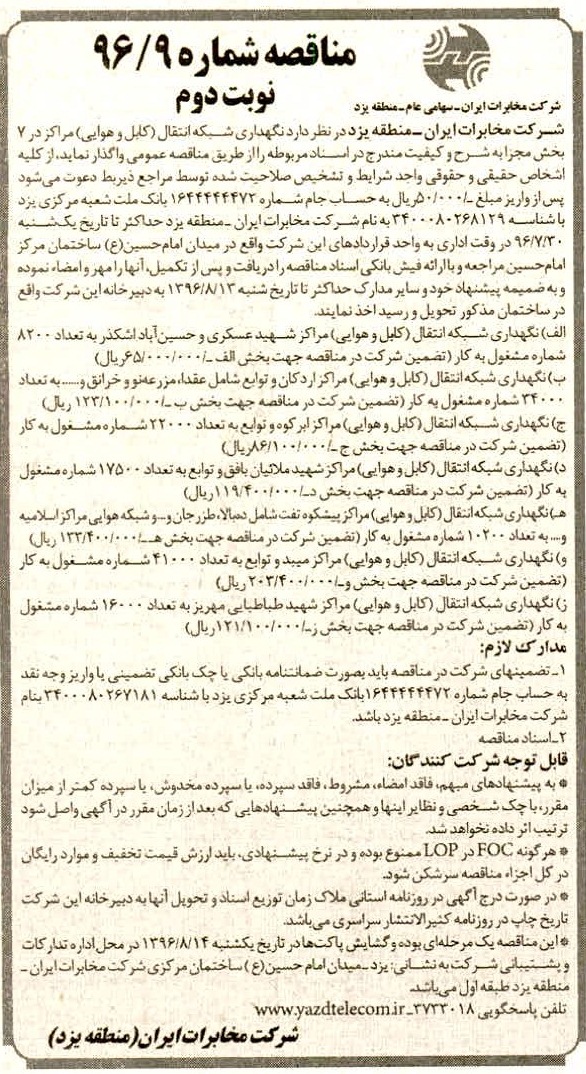 مناقصه شماره ۹۶/۹
نوبت دوم
شرکت مخابرات ایران ـ سهامی عام ـ منطقه یزد
شرکت مخابرات ایران ـ منطقه یزد در نظر دارد نگهداری شبکه انتقال (کابل و هوایی) مراکز در ۷
بخش مجزا به شرح و کیفیت مندرج در اسناد مربوطه را از طریق مناقصه عمومی واگذار نماید، از کلیه
اشخاص حقیقی و حقوقی واجد شرایط و تشخیص صلاحیت شده توسط مراجع ذیربط دعوت می‌شود
پس از واریز مبلغ ـ/۵۰/۰۰۰ریال به حساب جام شماره ۱۶۴۴۴۴۴۴۷۳ بانک ملت شعبه مرکزی یزد
با شناسه ۳۴۰۰۰۸۰۲۶۸۱۲۹ به نام شرکت مخابرات ایران ـ منطقه یزد حداکثر تا تاریخ یکشنبه
۹۶/۷/۳۰ در وقت اداری به واحد قراردادهای این شرکت واقع در میدان امام حسین(ع) ساختمان مرکز
امام حسین مراجعه و با ارائه فیش بانکی اسناد مناقصه را دریافت و پس از تکمیل، آنها را مهر و امضاء نموده
و به ضمیمه پیشنهاد خود و سایر مدارک حداکثر تا تاریخ شنبه ۱۳۹۶/۸/۱۳ به دبیرخانه این شرکت واقع
در ساختمان مذکور تحویل و رسید اخذ نمایند.
الف) نگهداری شبکه انتقال (کابل و هوایی) مراکز شهید عسکری و حسین‌آباد اشکذر به تعداد ۸۲۰۰
شماره مشغول به کار (تضمین شرکت در مناقصه جهت بخش الف ـ/۶۵/۰۰۰/۰۰۰ریال)
ب) نگهداری شبکه انتقال (کابل و هوایی) مراکز اردکان و توابع شامل عقدا، مزرعه‌نو و خرانق و...... به تعداد
۳۴۰۰۰ شماره مشغول به کار (تضمین شرکت در مناقصه جهت بخش ب ـ/۱۲۳/۱۰۰/۰۰۰ ریال)
ج) نگهداری شبکه انتقال (کابل و هوایی) مراکز ابرکوه و توابع به تعداد ۲۲۰۰۰ شماره مشغول به کار
(تضمین شرکت در مناقصه جهت بخش ج ـ/۸۶/۱۰۰/۰۰۰ریال)
د) نگهداری شبکه انتقال (کابل و هوایی) مراکز شهید ملائیان بافق و توابع به تعداد ۱۷۵۰۰ شماره مشغول
به کار (تضمین شرکت در مناقصه جهت بخش د ـ/۱۱۹/۴۰۰/۰۰۰ریال)
هـ) نگهداری شبکه انتقال (کابل و هوایی) مراکز پیشکوه تفت شامل ده‌بالا، طزرجان و... و شبکه هوایی مراکز اسلامیه
و.... به تعداد ۱۰۲۰۰ شماره مشغول به کار (تضمین شرکت در مناقصه جهت بخش هـ ـ/۱۳۳/۴۰۰/۰۰۰ ریال)
و) نگهداری شبکه انتقال (کابل و هوایی) مراکز میبد و توابع به تعداد ۴۱۰۰۰ شماره مشغول به کار
(تضمین شرکت در مناقصه جهت بخش و ـ/۲۰۳/۴۰۰/۰۰۰ ریال)
ز) نگهداری شبکه انتقال (کابل و هوایی) مراکز شهید طباطبایی مهریز به تعداد ۱۶۰۰۰ شماره مشغول
به کار (تضمین شرکت در مناقصه جهت بخش ز ـ/۱۲۱/۱۰۰/۰۰۰ریال)
مدارک لازم:
۱ـ تضمینهای شرکت در مناقصه باید بصورت ضمانتنامه بانکی یا چک بانکی تضمینی یا واریز وجه نقد
به حساب جام شماره ۱۶۴۴۴۴۴۴۷۲ بانک ملت شعبه مرکزی یزد با شناسه ۳۴۰۰۰۸۰۲۶۷۱۸۱ بنام
شرکت مخابرات ایران ـ منطقه یزد باشد.
۲ـ اسناد مناقصه
قابل توجه شرکت کنندگان:
* به پیشنهادهای مبهم، فاقد امضاء، مشروط، فاقد سپرده، یا سپرده مخدوش، یا سپرده کمتر از میزان
مقرر، یا چک شخصی و نظایر اینها و همچنین پیشنهادهایی که بعد از زمان مقرر در آگهی واصل شود
ترتیب اثر داده نخواهد شد.
* هرگونه FOC در LOP ممنوع بوده و در نرخ پیشنهادی، باید ارزش قیمت تخفیف و موارد رایگان
در کل اجزاء مناقصه سرشکن شود.
* در صورت درج آگهی در روزنامه استانی ملاک زمان توزیع اسناد و تحویل آنها به دبیرخانه این شرکت
تاریخ چاپ در روزنامه کثیرالانتشار سراسری می‌باشد.
* این مناقصه یک مرحله‌ای بوده و گشایش پاکت‌ها در تاریخ یکشنبه ۱۳۹۶/۸/۱۴ در محل اداره تدارکات
و پشتیبانی شرکت به نشانی: یزد ـ میدان امام حسین(ع) ساختمان مرکزی شرکت مخابرات ایران ـ
منطقه یزد طبقه اول می‌باشد.
تلفن پاسخگویی ۳۷۳۳۰۱۸ـ www.yazdtelecom.ir
شرکت مخابرات ایران (منطقه یزد)